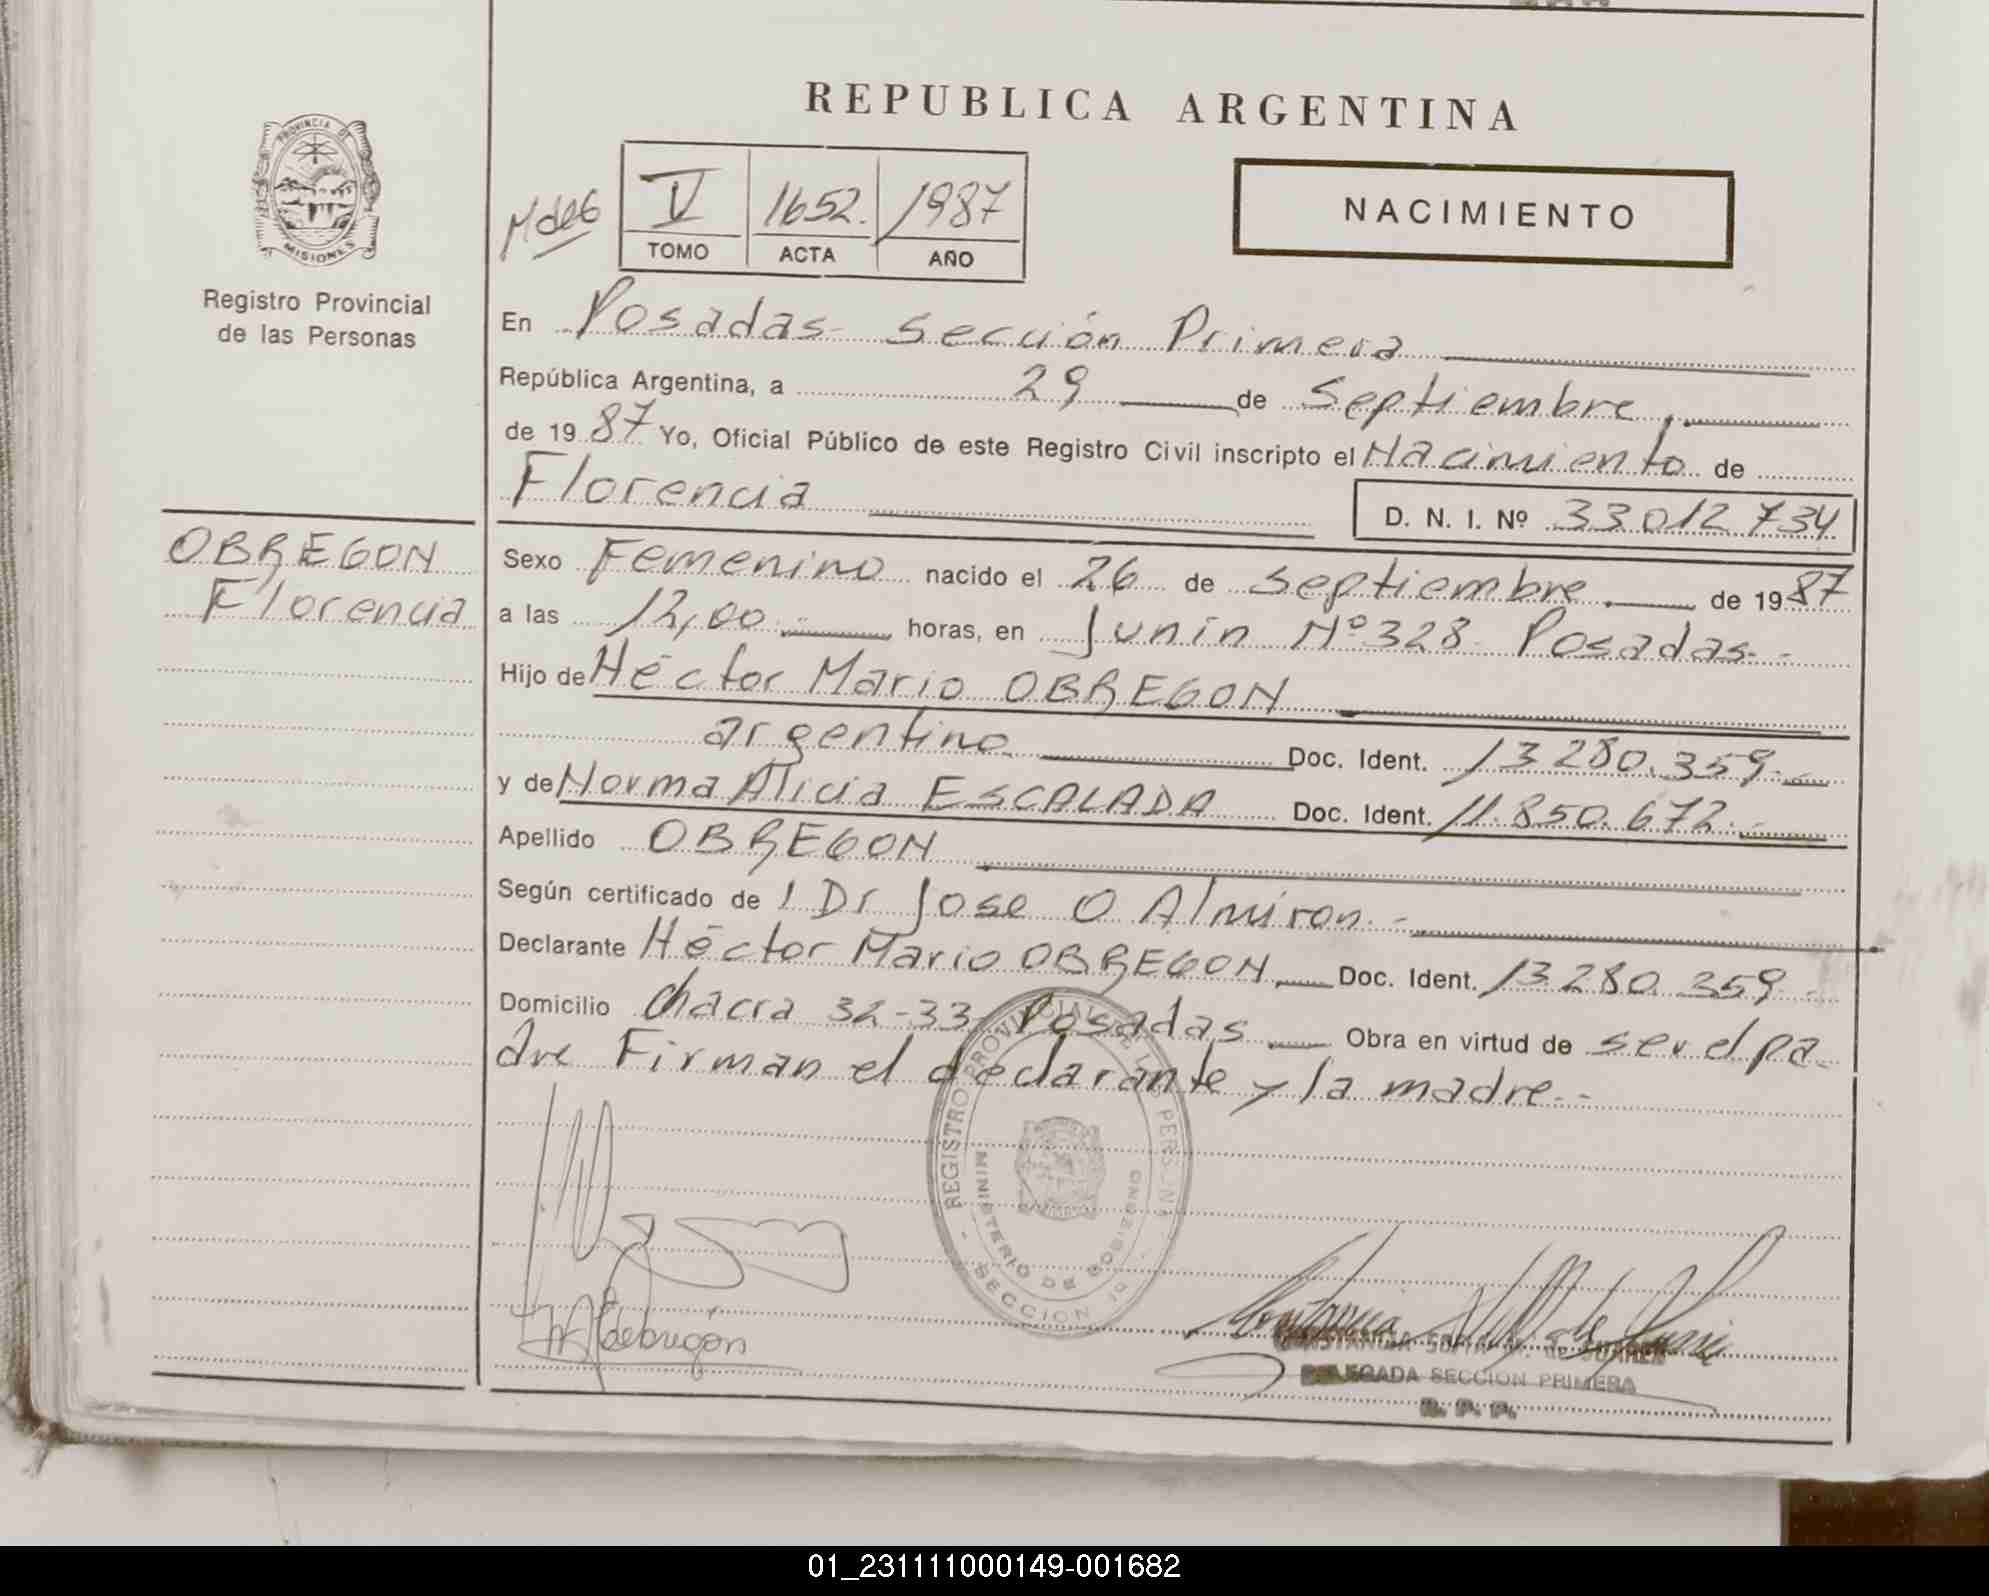 REPUBLICA ARGENTINA
PROVINCIA DE MISIONES
Registro Provincial
de las Personas
V 1652. 1987
TOMO ACTA AÑO
NACIMIENTO
En Posadas - Sección Primera
República Argentina, a 29 de Septiembre.
de 1987 Yo, Oficial Público de este Registro Civil inscripto el Nacimiento de
Florencia D. N. I. Nº 33 012 734
OBREGON
Florencia
Sexo Femenino nacido el 26 de Septiembre de 1987
a las 12,00 horas, en Junín Nº 328 - Posadas. -
Hijo de Héctor Mario OBREGON
argentino Doc. Ident. 13.280.359. -
y de Norma Alicia ESCALADA Doc. Ident. 11.850.672. -
Apellido OBREGON
Según certificado de l Dr Jose O Almiron. -
Declarante Héctor Mario OBREGON Doc. Ident. 13.280.359 -
Domicilio Chacra 32-33 Posadas Obra en virtud de ser el pa
dre Firman el declarante y la madre. -
REGISTRO PROVINCIAL DE LAS PERSONAS
MINISTERIO DE GOBIERNO
SECCION 1ª
DELEGADA SECCION PRIMERA
R. P. P.
01_231111000149-001682